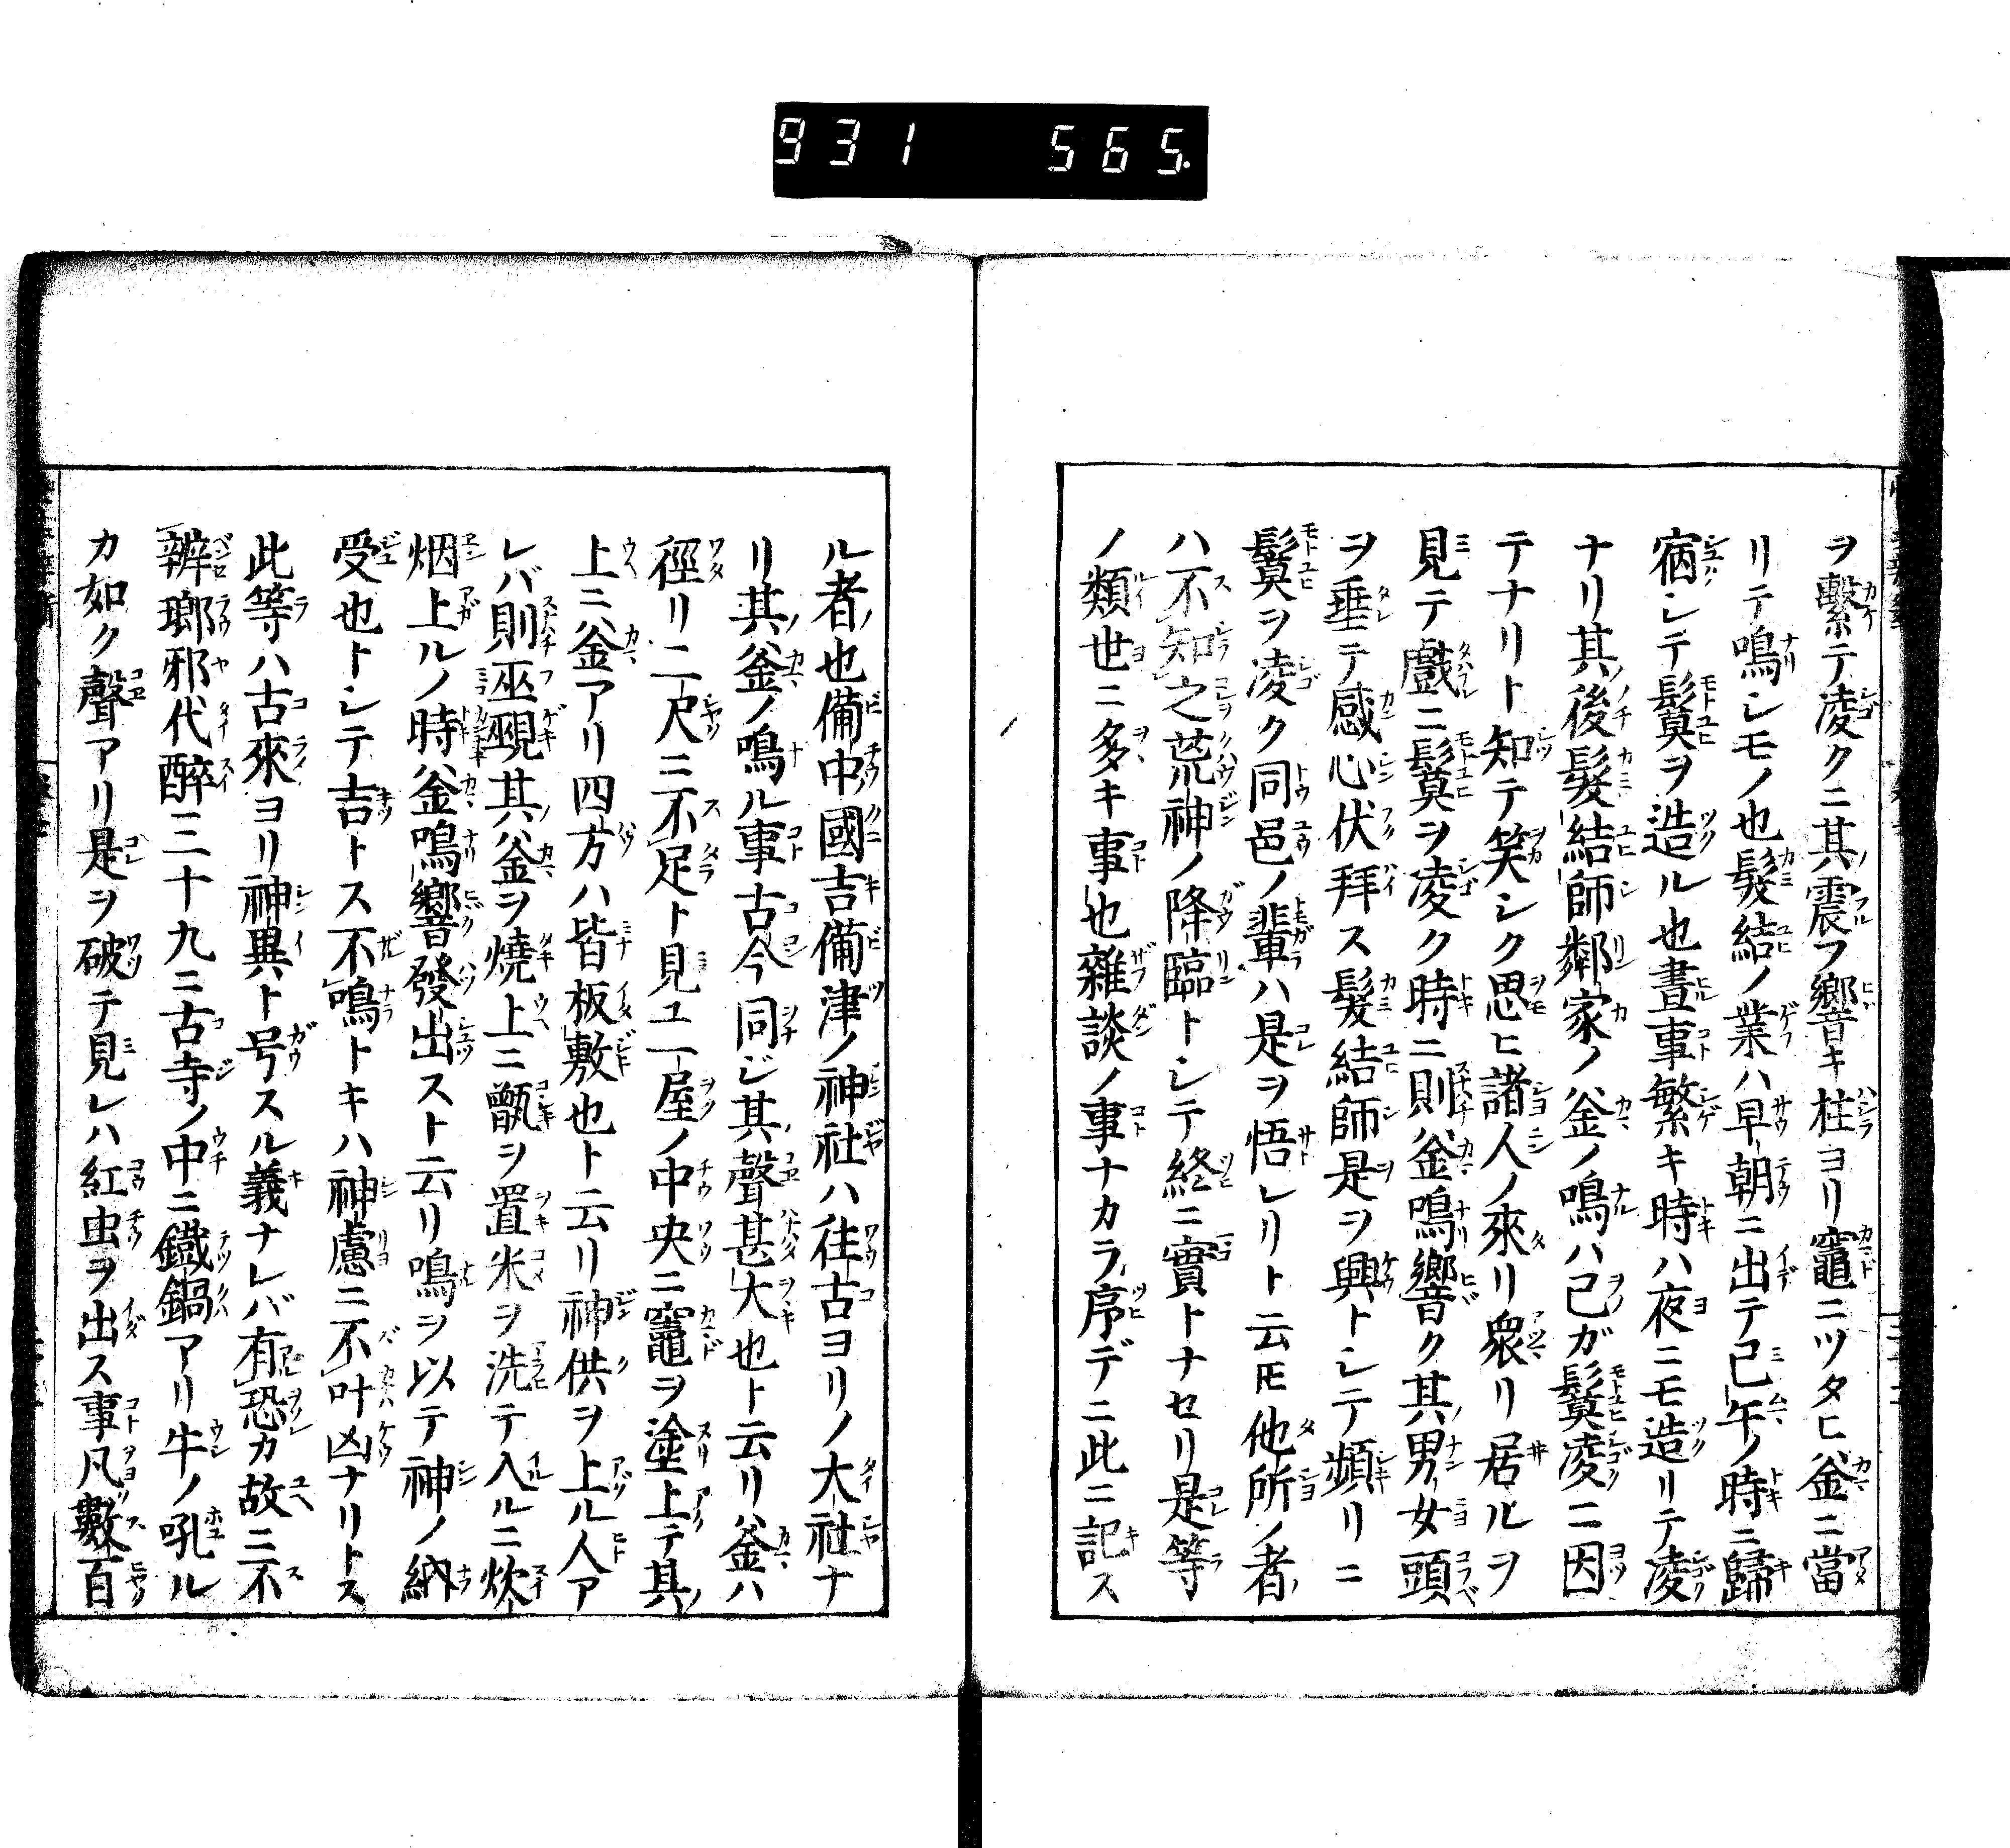 931 565
ヲ繫テ凌クニ其震フ響キ柱ヨリ竈ニツタヒ釜ニ當
リテ鳴シモノ也髮結ノ業ハ早朝ニ出テ己午ノ時ニ歸
宿シテ鬂ヲ造ル也晝事繁キ時ハ夜ニモ造リテ凌
ナリ其後髮結師鄰家ノ釜ノ鳴ハ己ガ鬂凌ニ因
テナリト知テ笑シク思ヒ諸人ノ來リ衆リ居ルヲ
見テ戲ニ鬂ヲ凌ク時ニ則釜鳴響ク其男女頭
ヲ垂テ感心伏拜ス髮結師是ヲ興トシテ頻リニ
鬂ヲ凌ク同邑ノ輩ハ是ヲ悟レリト云𪜈他所ノ者
ハ不知之荒神ノ降臨トシテ終ニ實トナセリ是等
ノ類世ニ多キ事也雜談ノ事ナカラ序デニ此ニ記ス
ル者也備中國吉備津ノ神社ハ往古ヨリノ大社ナ
リ其釜ノ鳴ル事古今同ジ其聲甚大也ト云リ釜ハ
徑リ二尺ニ不足ト見ユ一屋ノ中央ニ竈ヲ塗上テ其
上ニ釜アリ四方ハ皆板敷也ト云リ神供ヲ上ル人ア
レバ則巫覡其釜ヲ燒上ニ甑ヲ置米ヲ洗テ入ルニ炊
烟上ルノ時釜鳴響發出スト云リ鳴ヲ以テ神ノ納
受也トシテ吉トス不鳴トキハ神慮ニ不叶凶ナリトス
此等ハ古來ヨリ神異ト号スル義ナレバ有恐カ故ニ不
辨瑯邪代醉三十九ニ古寺ノ中ニ鐵鍋アリ牛ノ吼ル
カ如ク聲アリ是ヲ破テ見レハ紅虫ヲ出ス事凡數百